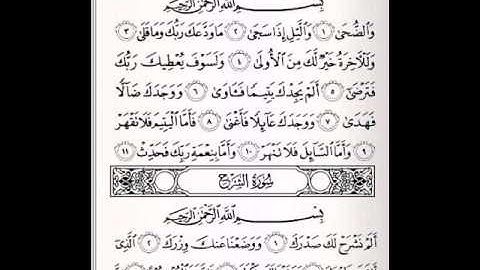 بِسْمِ اللَّهِ الرَّحْمَٰنِ الرَّحِيمِ
وَالضُّحَىٰ ١ وَاللَّيْلِ إِذَا سَجَىٰ ٢ مَا وَدَّعَكَ رَبُّكَ وَمَا قَلَىٰ ٣
وَلَلْآخِرَةُ خَيْرٌ لَّكَ مِنَ الْأُولَىٰ ٤ وَلَسَوْفَ يُعْطِيكَ رَبُّكَ
فَتَرْضَىٰ ٥ أَلَمْ يَجِدْكَ يَتِيمًا فَآوَىٰ ٦ وَوَجَدَكَ ضَالًّا
فَهَدَىٰ ٧ وَوَجَدَكَ عَائِلًا فَأَغْنَىٰ ٨ فَأَمَّا الْيَتِيمَ فَلَا تَقْهَرْ
٩ وَأَمَّا السَّائِلَ فَلَا تَنْهَرْ ١٠ وَأَمَّا بِنِعْمَةِ رَبِّكَ فَحَدِّثْ ١١
سُورَةُ الشَّرْحِ
بِسْمِ اللَّهِ الرَّحْمَٰنِ الرَّحِيمِ
أَلَمْ نَشْرَحْ لَكَ صَدْرَكَ ١ وَوَضَعْنَا عَنكَ وِزْرَكَ ٢ الَّذِي